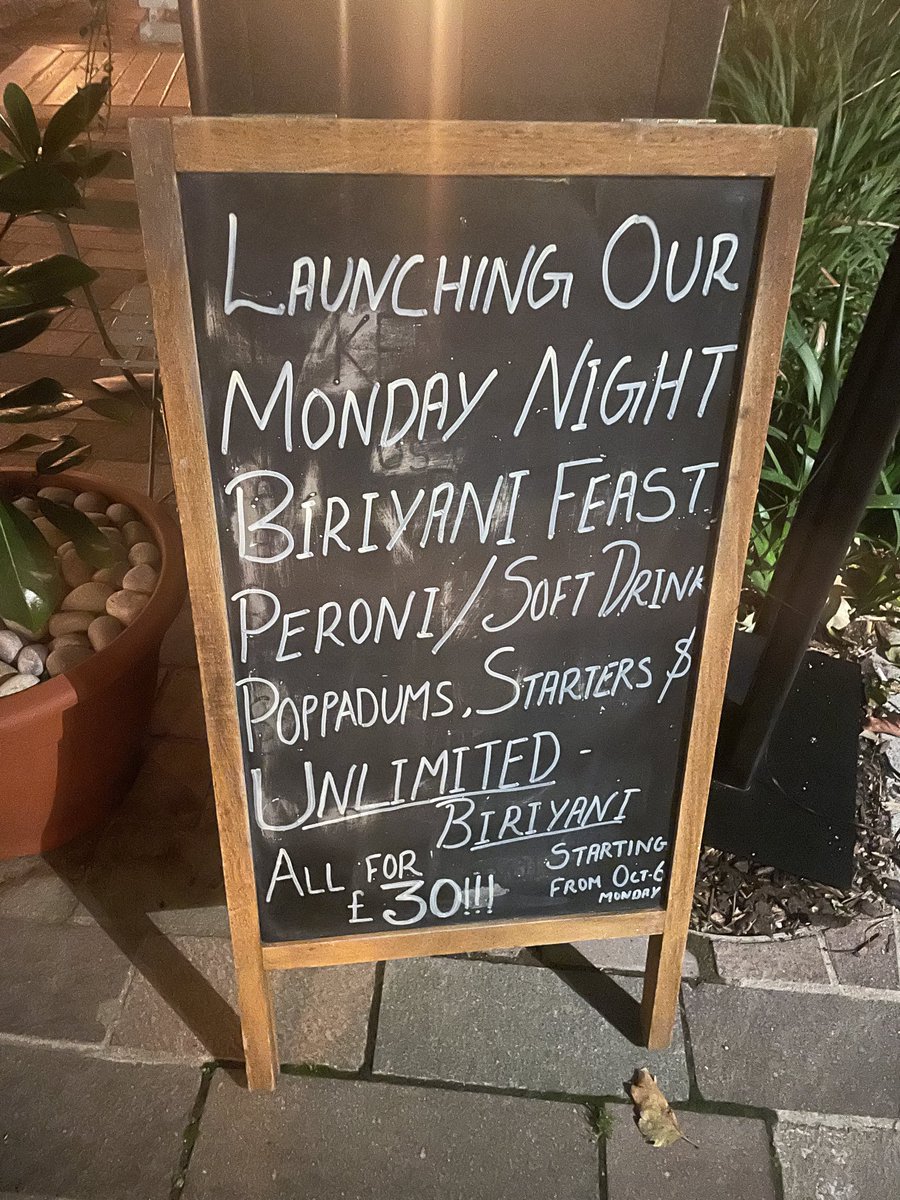 LAUNCHING OUR
MONDAY NIGHT
BIRIYANI FEAST
PERONI/SOFT DRINK
POPPADUMS, STARTERS &
UNLIMITED -
BIRIYANI
ALL FOR
£30!!!
STARTING
FROM OCT-6
MONDAY